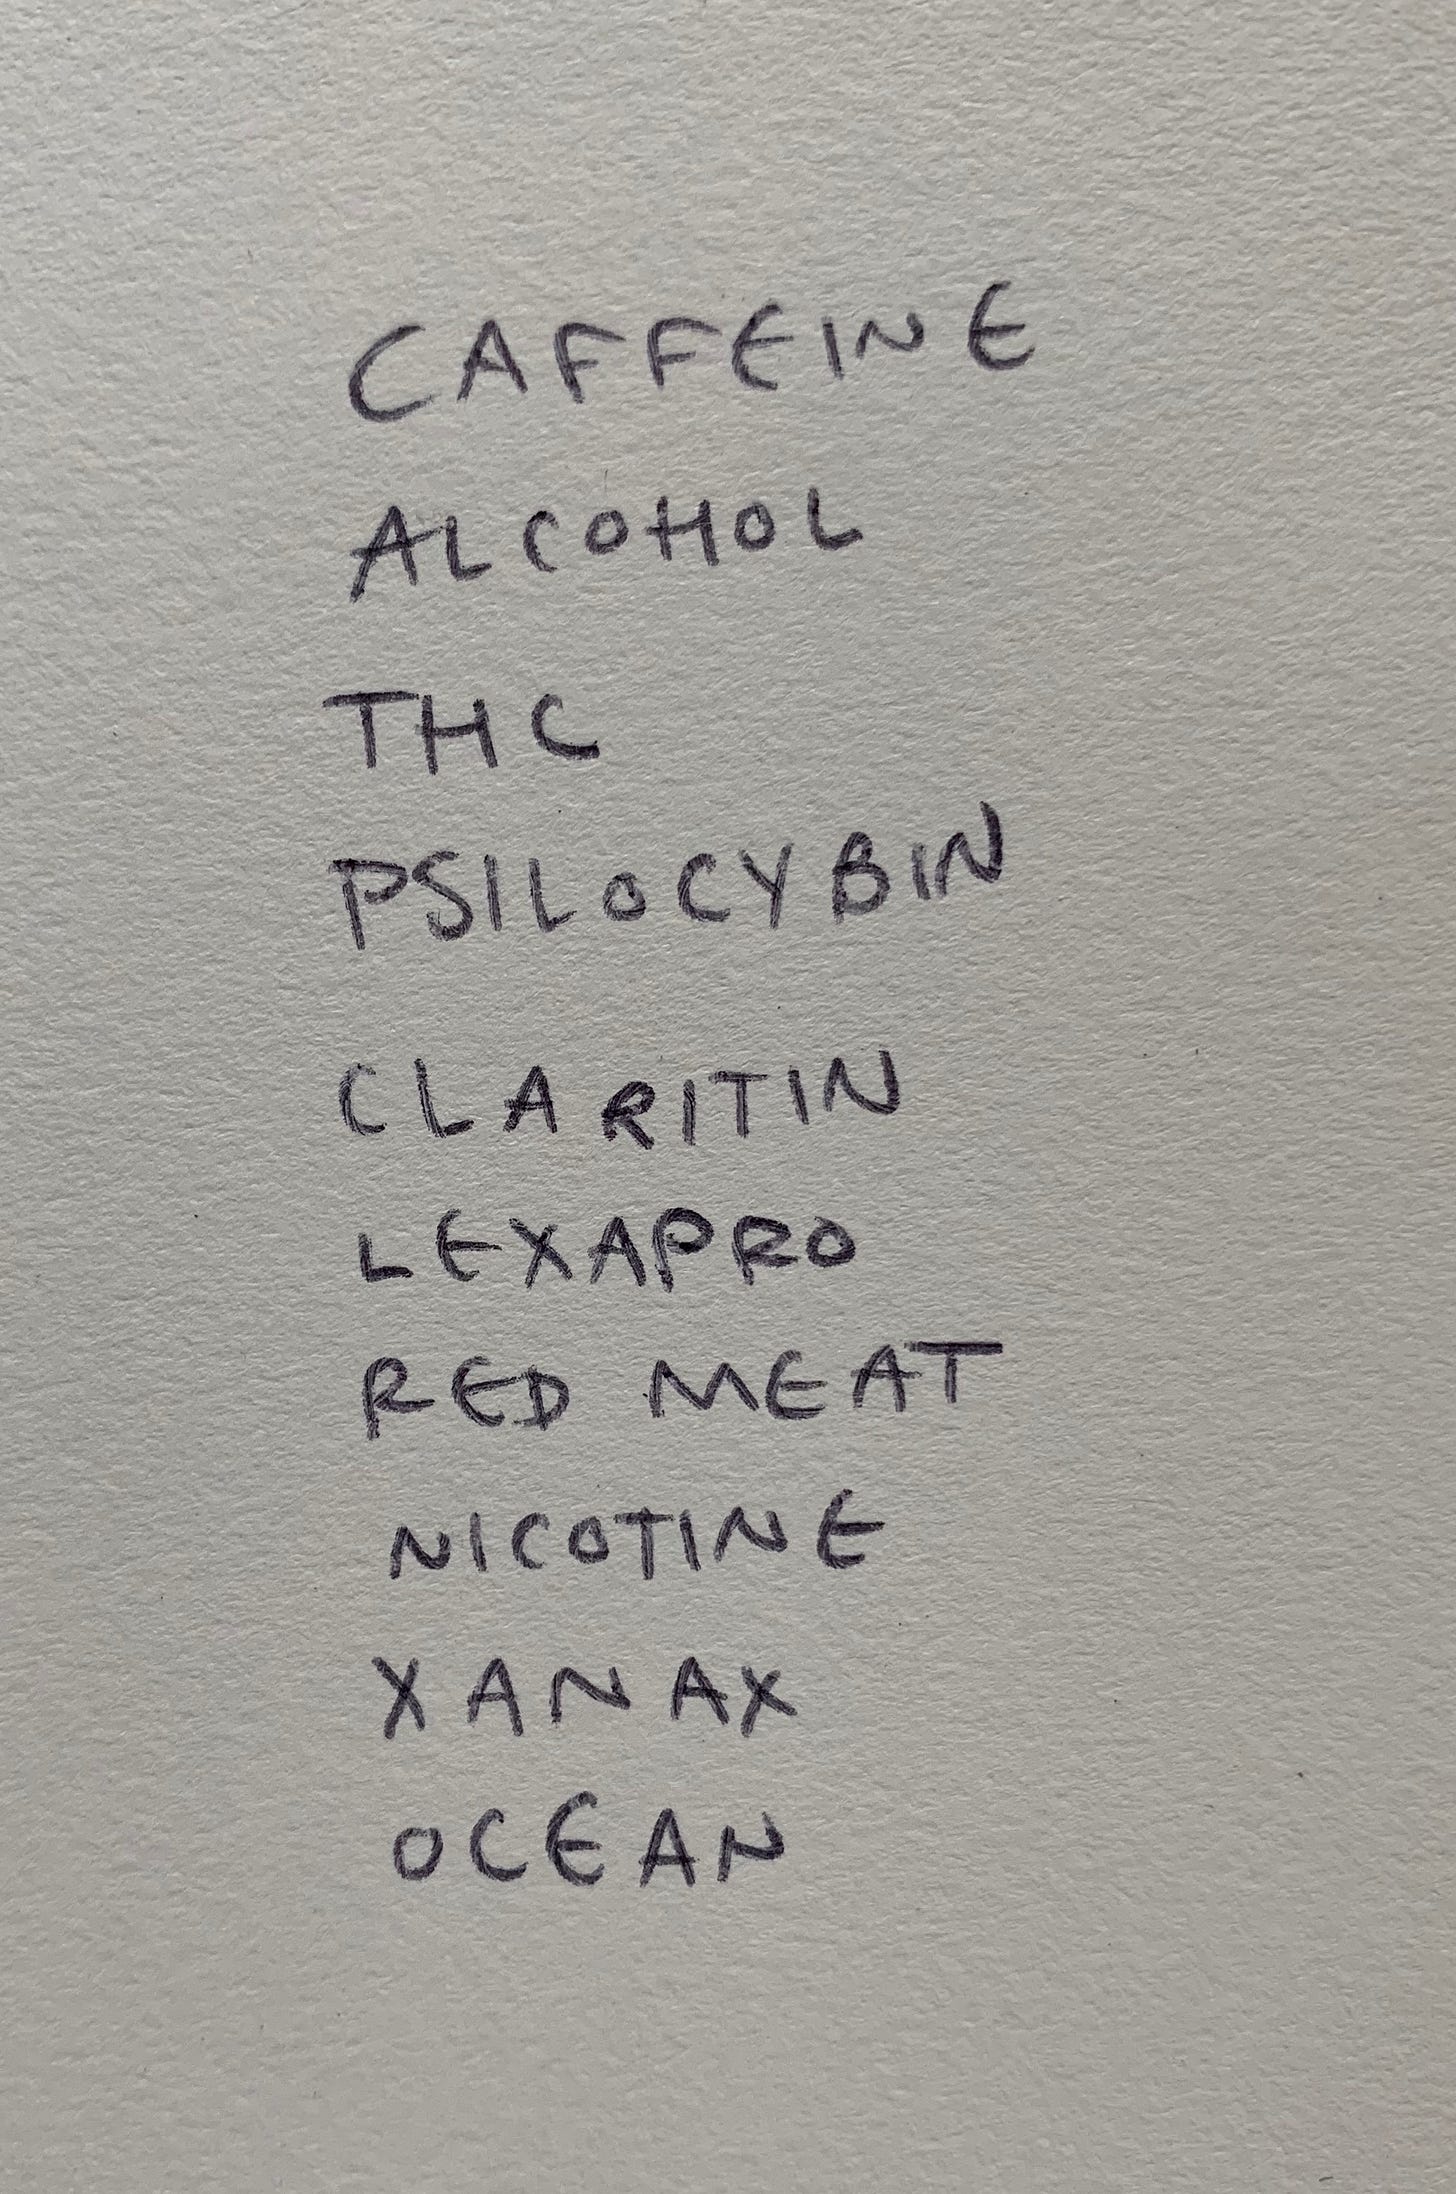 CAFFEINE
ALCOHOL
THC
PSILOCYBIN
CLARITIN
LEXAPRO
RED MEAT
NICOTINE
XANAX
OCEAN